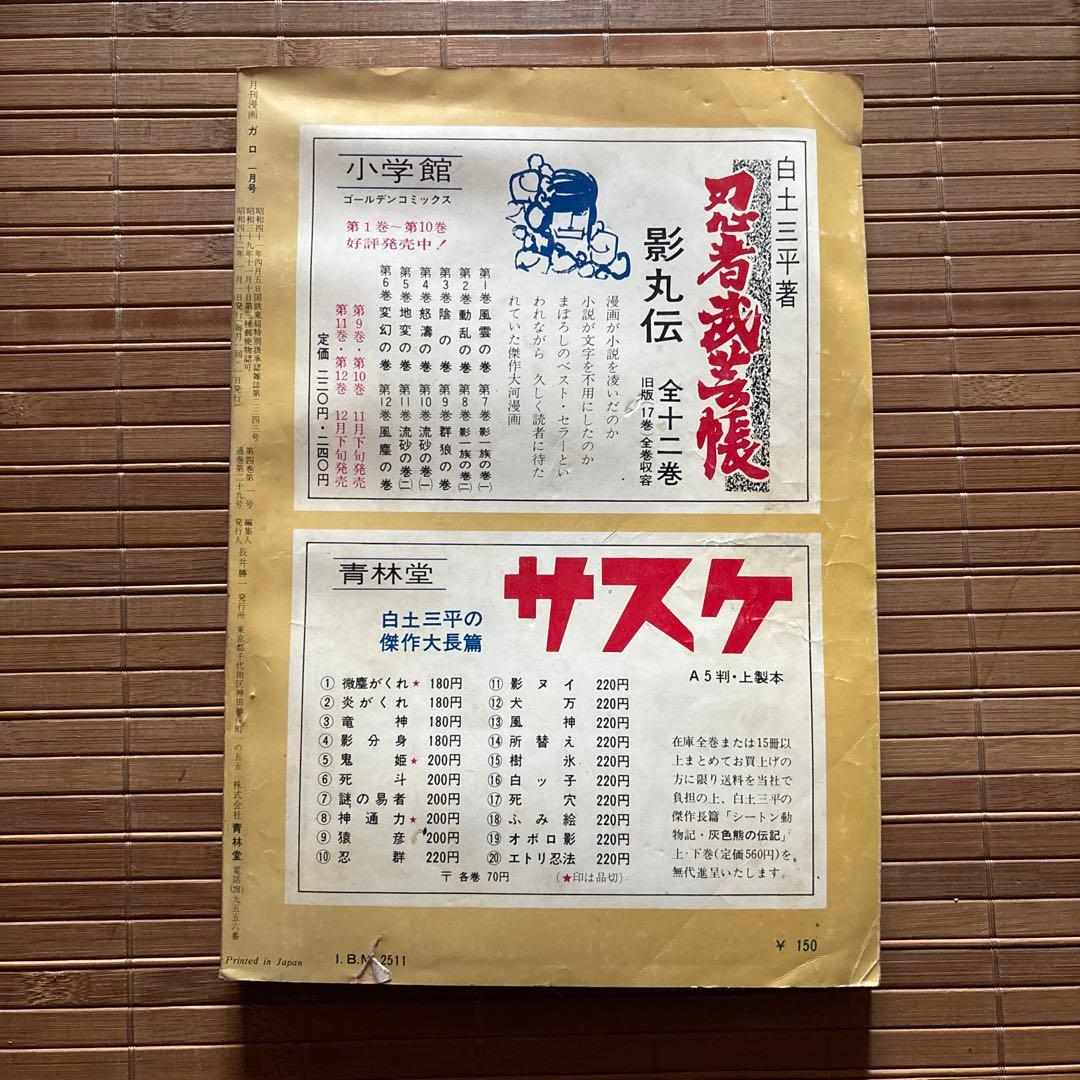 月刊漫画 ガロ 一月号
昭和四十一年四月五日国鉄東局特別扱承認雑誌第一三四三号
昭和三十九年十一月十日第三種郵便物認可
昭和四十二年一月一日発行(毎月一回・一日発行)
第四巻第一号
通巻第二十九号
編集人
発行人
長井勝一
発行所 東京都千代田区神田神保町一の五五 株式会社 青林堂
白土三平著
忍者武芸帳
影丸伝
全十二巻
旧版(17巻)全巻収容
漫画が小説を凌いだのか
小説が文字を不用にしたのか
まぼろしのベスト・セラーとい
われながら 久しく読者に待た
れていた傑作大河漫画
小学館
ゴールデンコミックス
第1巻~第10巻
好評発売中!
第1巻 風雲の巻 第7巻 影一族の巻(一)
第2巻 動乱の巻 第8巻 影一族の巻(二)
第3巻 陰の巻 第9巻 群狼の巻
第4巻 怒濤の巻 第10巻 流砂の巻(一)
第5巻 地変の巻 第11巻 流砂の巻(二)
第6巻 変幻の巻 第12巻 風塵の巻
第9巻・第10巻 11月下旬発売
第11巻・第12巻 12月下旬発売
定価 二二〇円・二四〇円
青林堂
サスケ
白土三平の
傑作大長篇
A5判・上製本
① 微塵がくれ★ 180円
② 炎がくれ 180円
③ 竜神 180円
④ 影分身 180円
⑤ 鬼姫★ 200円
⑥ 死斗 200円
⑦ 謎の易者 200円
⑧ 神通力★ 200円
⑨ 猿彦 200円
⑩ 忍群 220円
⑪ 影ヌイ 220円
⑫ 犬万 220円
⑬ 風神 220円
⑭ 所替え 220円
⑮ 樹氷 220円
⑯ 白ッ子 220円
⑰ 死穴 220円
⑱ ふみ絵 220円
⑲ オボロ影 220円
⑳ エトリ忍法 220円
〒 各巻 70円
(★印は品切)
在庫全巻または15冊以
上まとめてお買上げの
方に限り送料を当社で
負担の上、白土三平の
傑作長篇「シートン動
物記・灰色熊の伝記」
上・下巻(定価560円)を
無代進呈いたします。
¥ 150
Printed in Japan
I.B.M. 2511